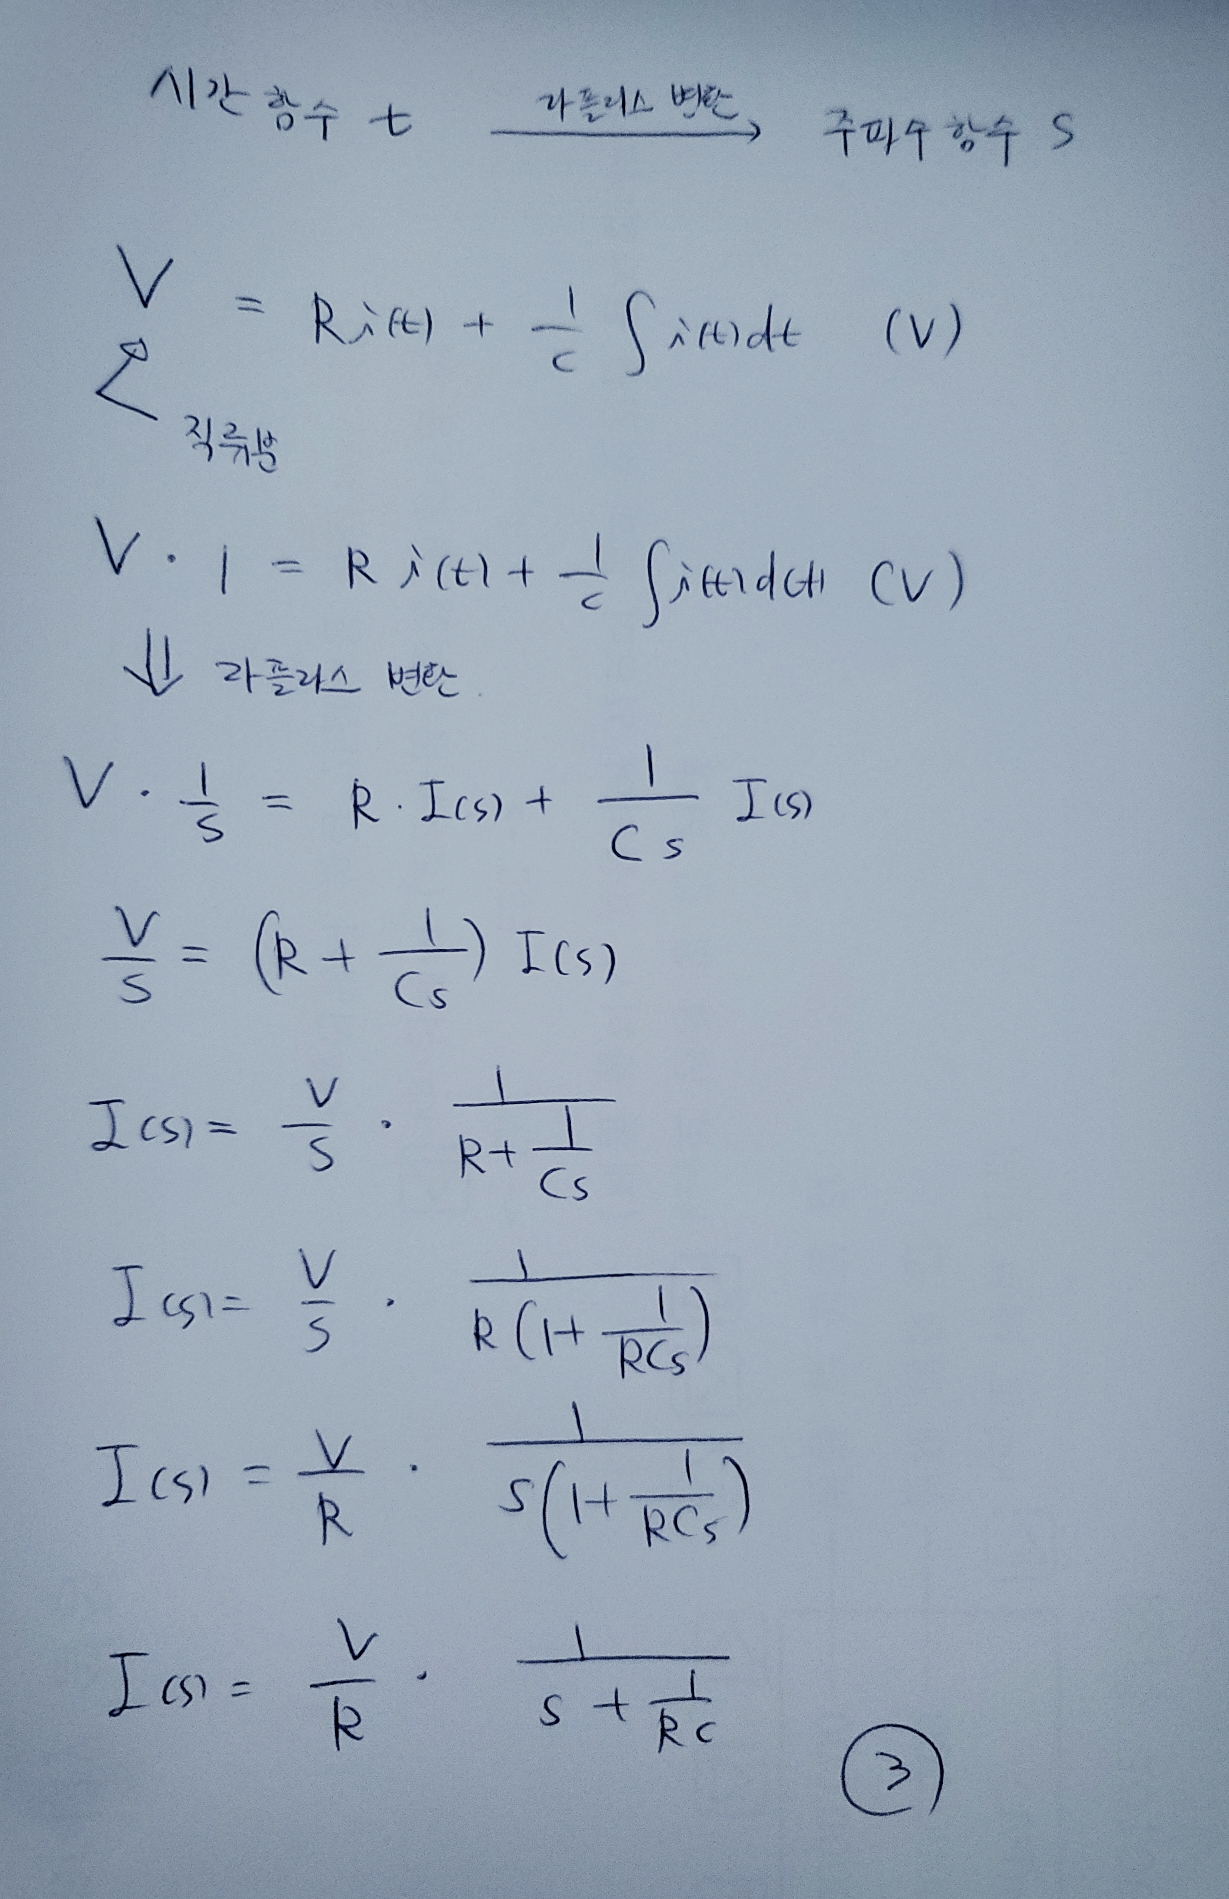 시간 함수 t 라플라스 변환 → 주파수 함수 S
V = R i(t) + 1/C ∫ i(t)dt (V)
직류분
V · 1 = R i(t) + 1/C ∫ i(t)d(t) (V)
⇓ 라플라스 변환.
V · 1/S = R · I(s) + 1/(Cs) I(s)
V/S = (R + 1/(Cs)) I(s)
I(s) = V/S · 1/(R + 1/(Cs))
I(s) = V/S · 1/(R(1 + 1/(RCs)))
I(s) = V/R · 1/(S(1 + 1/(RCs)))
I(s) = V/R · 1/(S + 1/(RC))
③